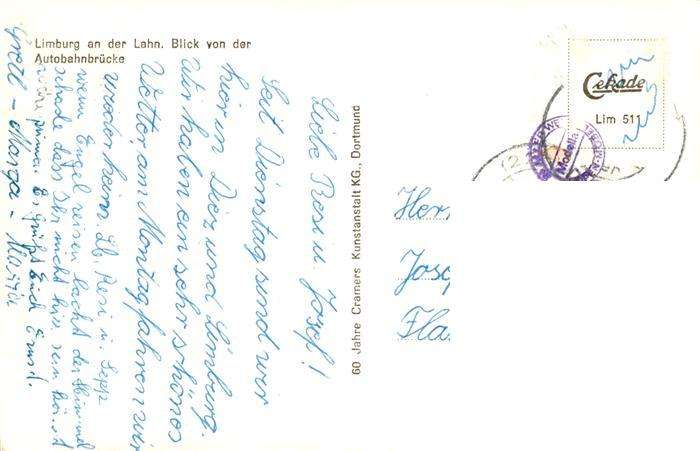 Limburg an der Lahn. Blick von der
Autobahnbrücke
Liebe Resi u. Josef!
Seit Dienstag sind wir
hier in Diez und Limburg.
Wir haben ein sehr schönes
Wetter, am Montag fahren wir
wieder heim. Lb. Resi u. Sepp
wenn Engel reisen lacht der Himmel
schade dass Ihr nicht hier sein
prima. Es grüßt Euch Ernst.
Gretl - Marga - Maria
60 Jahre Cramers Kunstanstalt KG., Dortmund
Cekade
Lim 511
Modella
Her
Jos
Fla